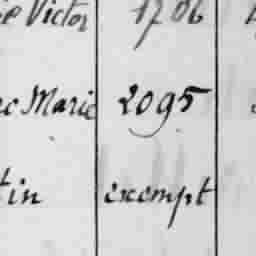 Victor 1706
Marie 2095
tin exempt